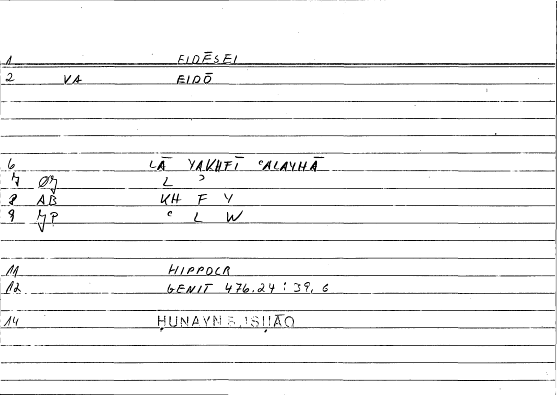 1 EIDĒSEI
2 VA EIDŌ
6 LĀ YAKHFĪ ʿALAYHĀ
7 ØJ L ʾ
8 AB KH F Y
9 JP ʿ L W
11 HIPPOCR
12 GENIT 476,24 : 39, 6
14 ḤUNAYN B. ISḤĀQ